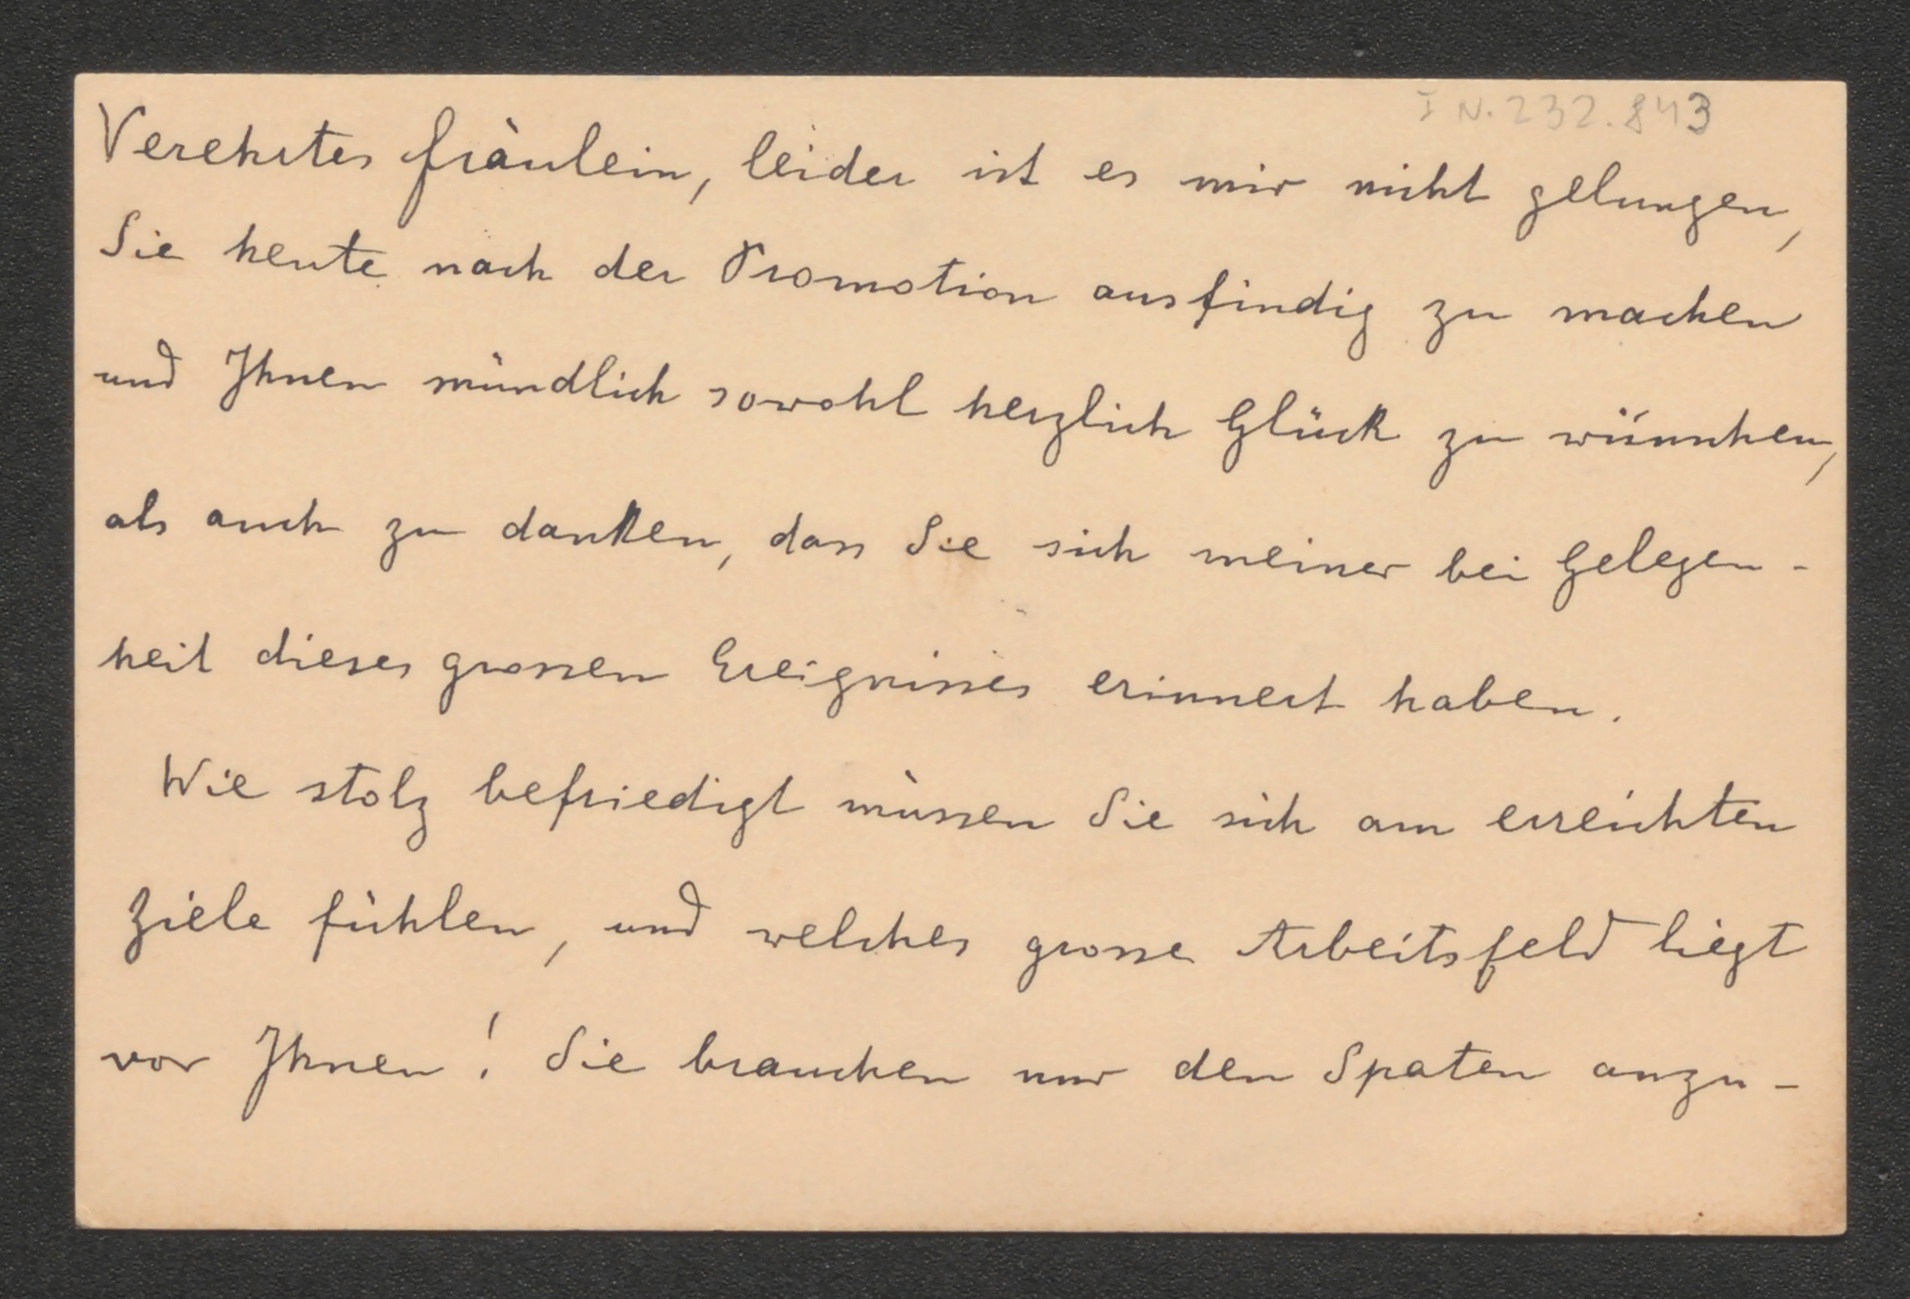 I N. 232.843
Verehrtes Fräulein, leider ist es mir nicht gelungen,
Sie heute nach der Promotion ausfindig zu machen
und Ihnen mündlich sowohl herzlich Glück zu wünschen,
als auch zu danken, dass Sie sich meiner bei Gelegen-
heit dieses grossen Ereignisses erinnert haben.
Wie stolz befriedigt müssen Sie sich am erreichten
Ziele fühlen, und welches grosse Arbeitsfeld liegt
vor Ihnen! Sie brauchen nur den Spaten anzu-